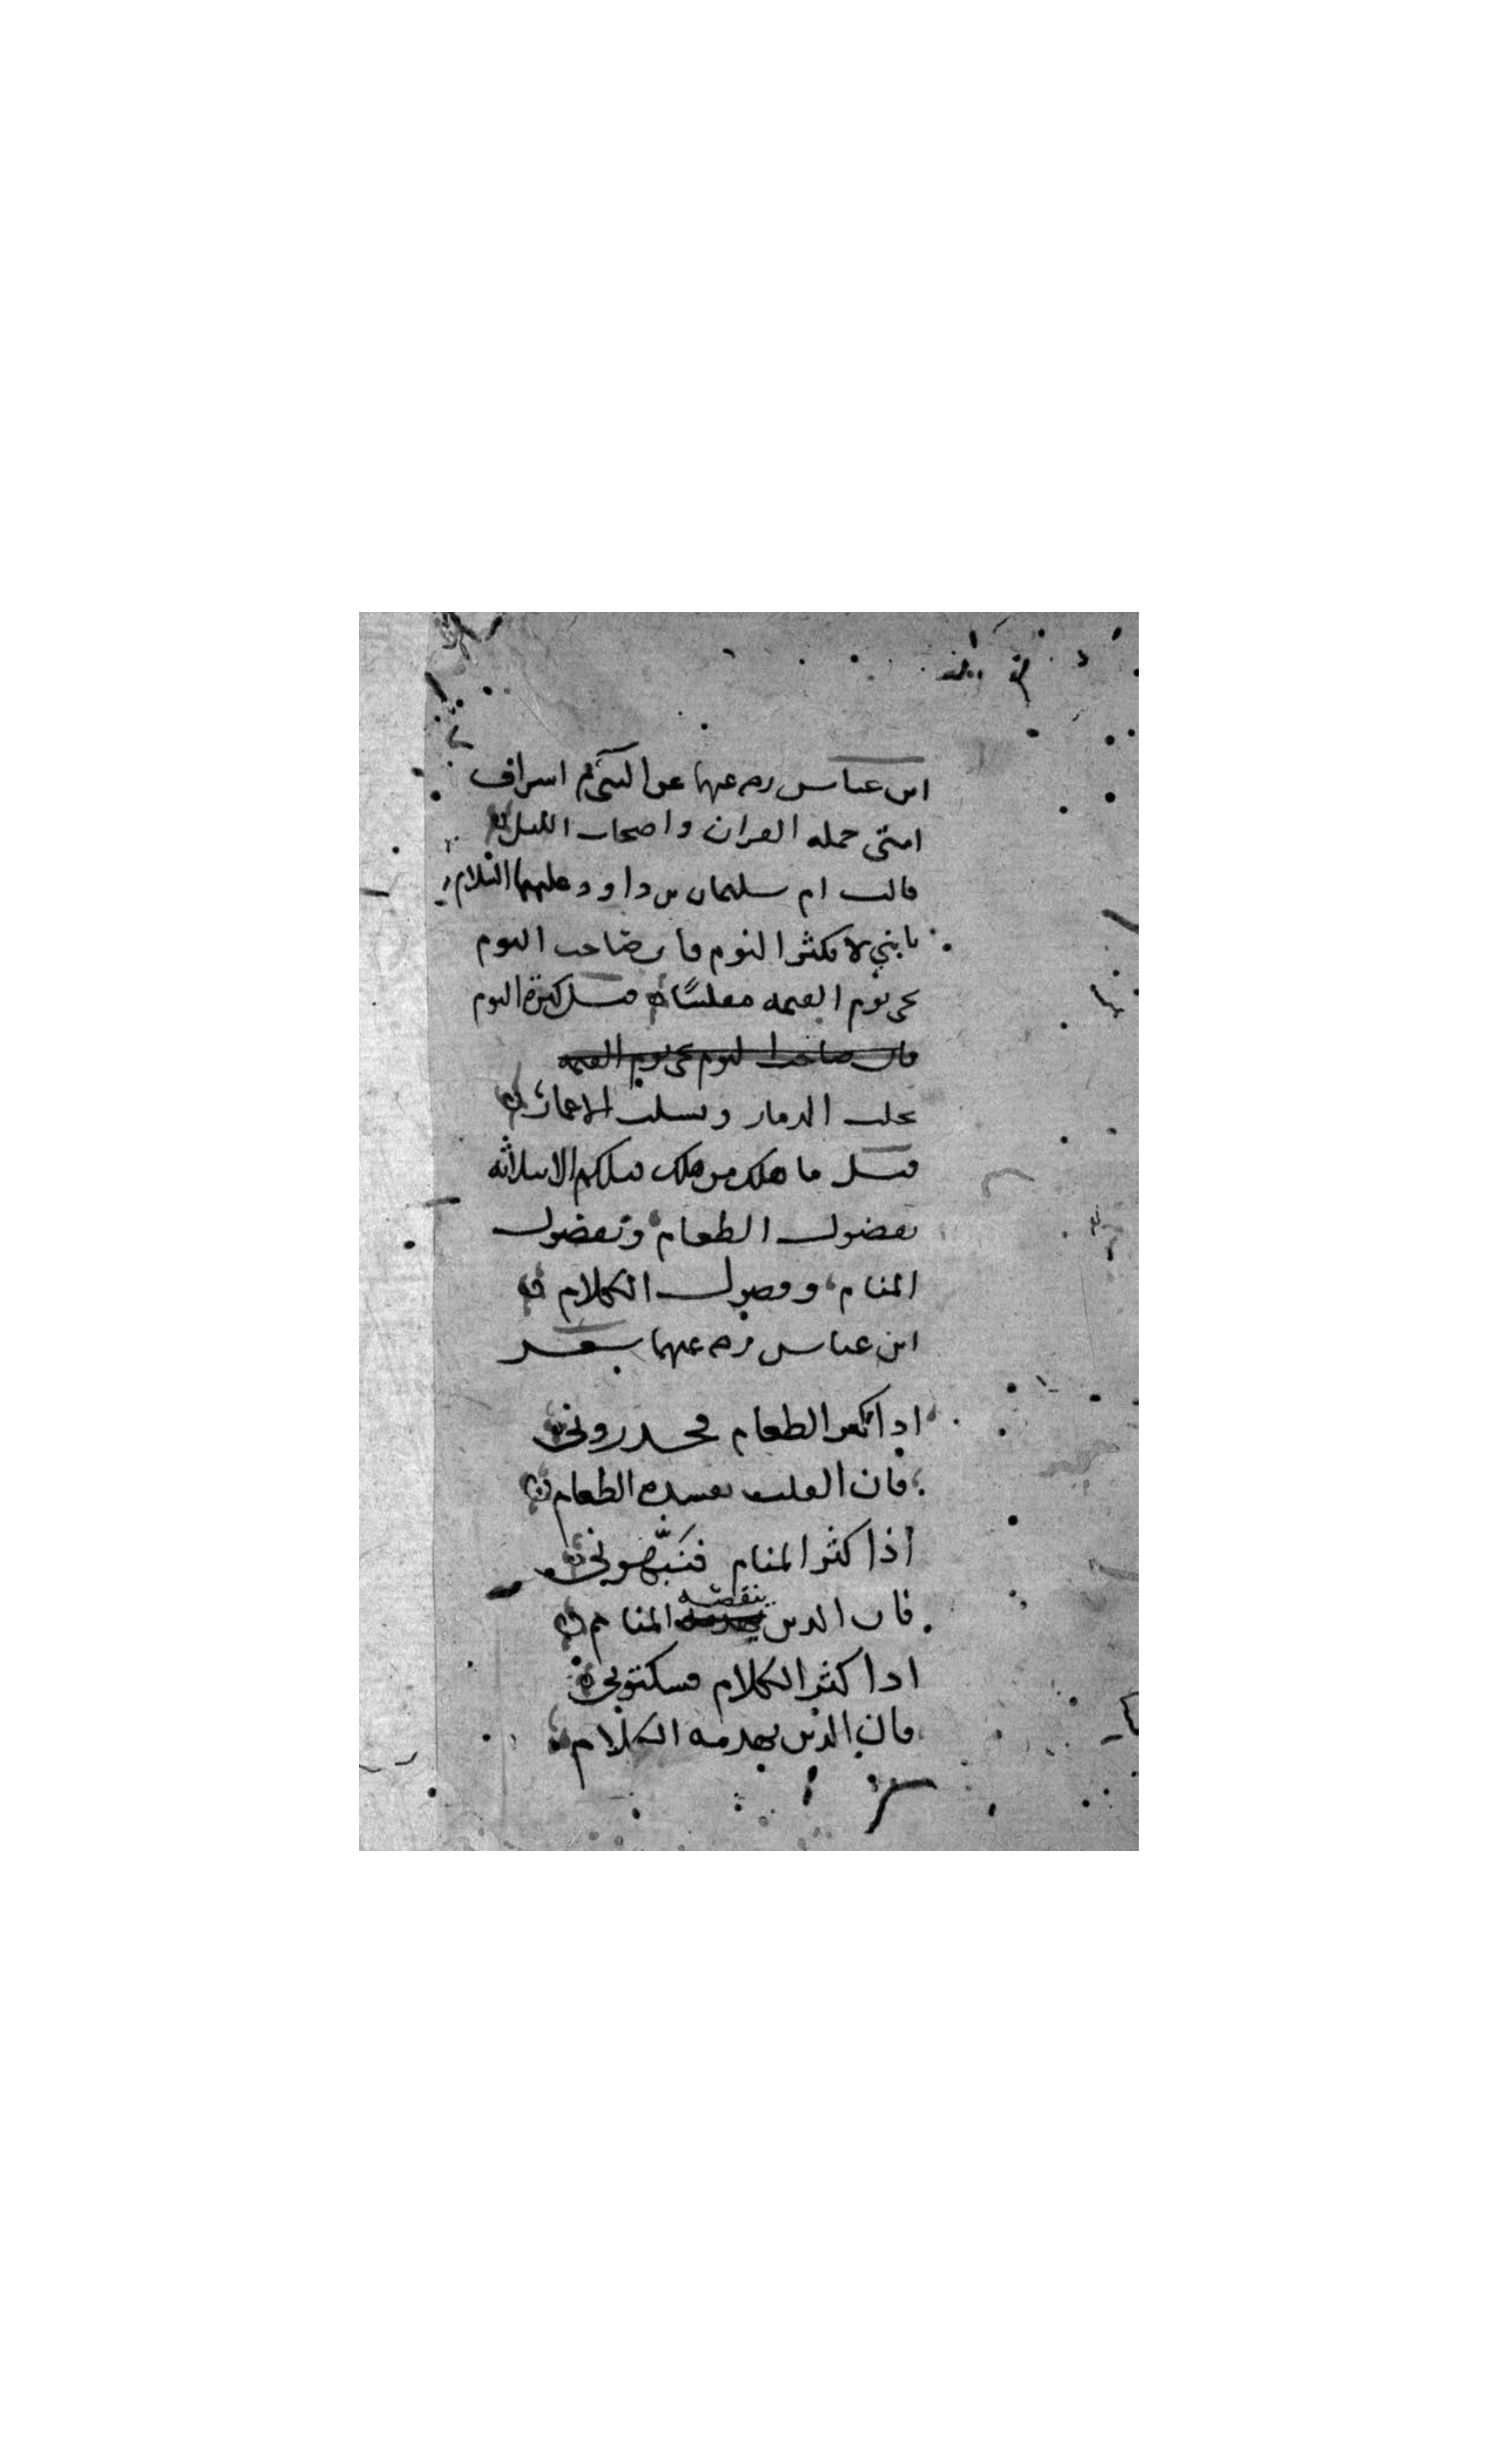 ابن عباس رضه عنهما عن النبي اشراف
امتى حمله القران واصحاب الليل
قالت ام سليمان بن داود عليهما السلام
يا بني لا تكثر النوم فان صاحب النوم
يجى يوم القيمه مفلسًا قيل كثرة النوم
فان صاحب النوم يجى يوم القيمه
يجلب الدمار ويسلب الاعمار
قيل ما هلك من هلك قبلكم الا بثلاثه
بفضول الطعام وبفضول
المنام وفضول الكلام
ابن عباس رضه عنهما شعر
اذا كثر الطعام فحذروني
فان القلب يفسده الطعام
اذا كثر المنام فَنَبّهوني
فان الدين ينقصه المنام
اذا كثر الكلام فسكتوني
فان الدين يهدمه الكلام